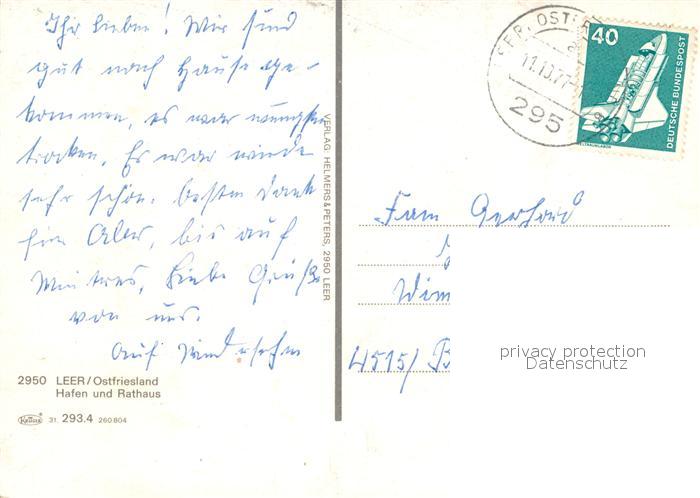 Ihr Lieben! Wir sind
gut nach Hause ge-
kommen, es war wenigstens
trocken. Es war wieder
sehr schön. Besten Dank
für Alles, bis auf
Weiteres, Liebe Grüße
von uns.
Auf Wiedersehn
2950 LEER/Ostfriesland
Hafen und Rathaus
KRÜGER 31. 293.4 260804
VERLAG: HELMERS & PETERS, 2950 LEER
LEER, OSTFR
11.10.77
295
40
DEUTSCHE BUNDESPOST
WELTRAUMLABOR
Fam Gerhard
4515/ B
privacy protection
Datenschutz